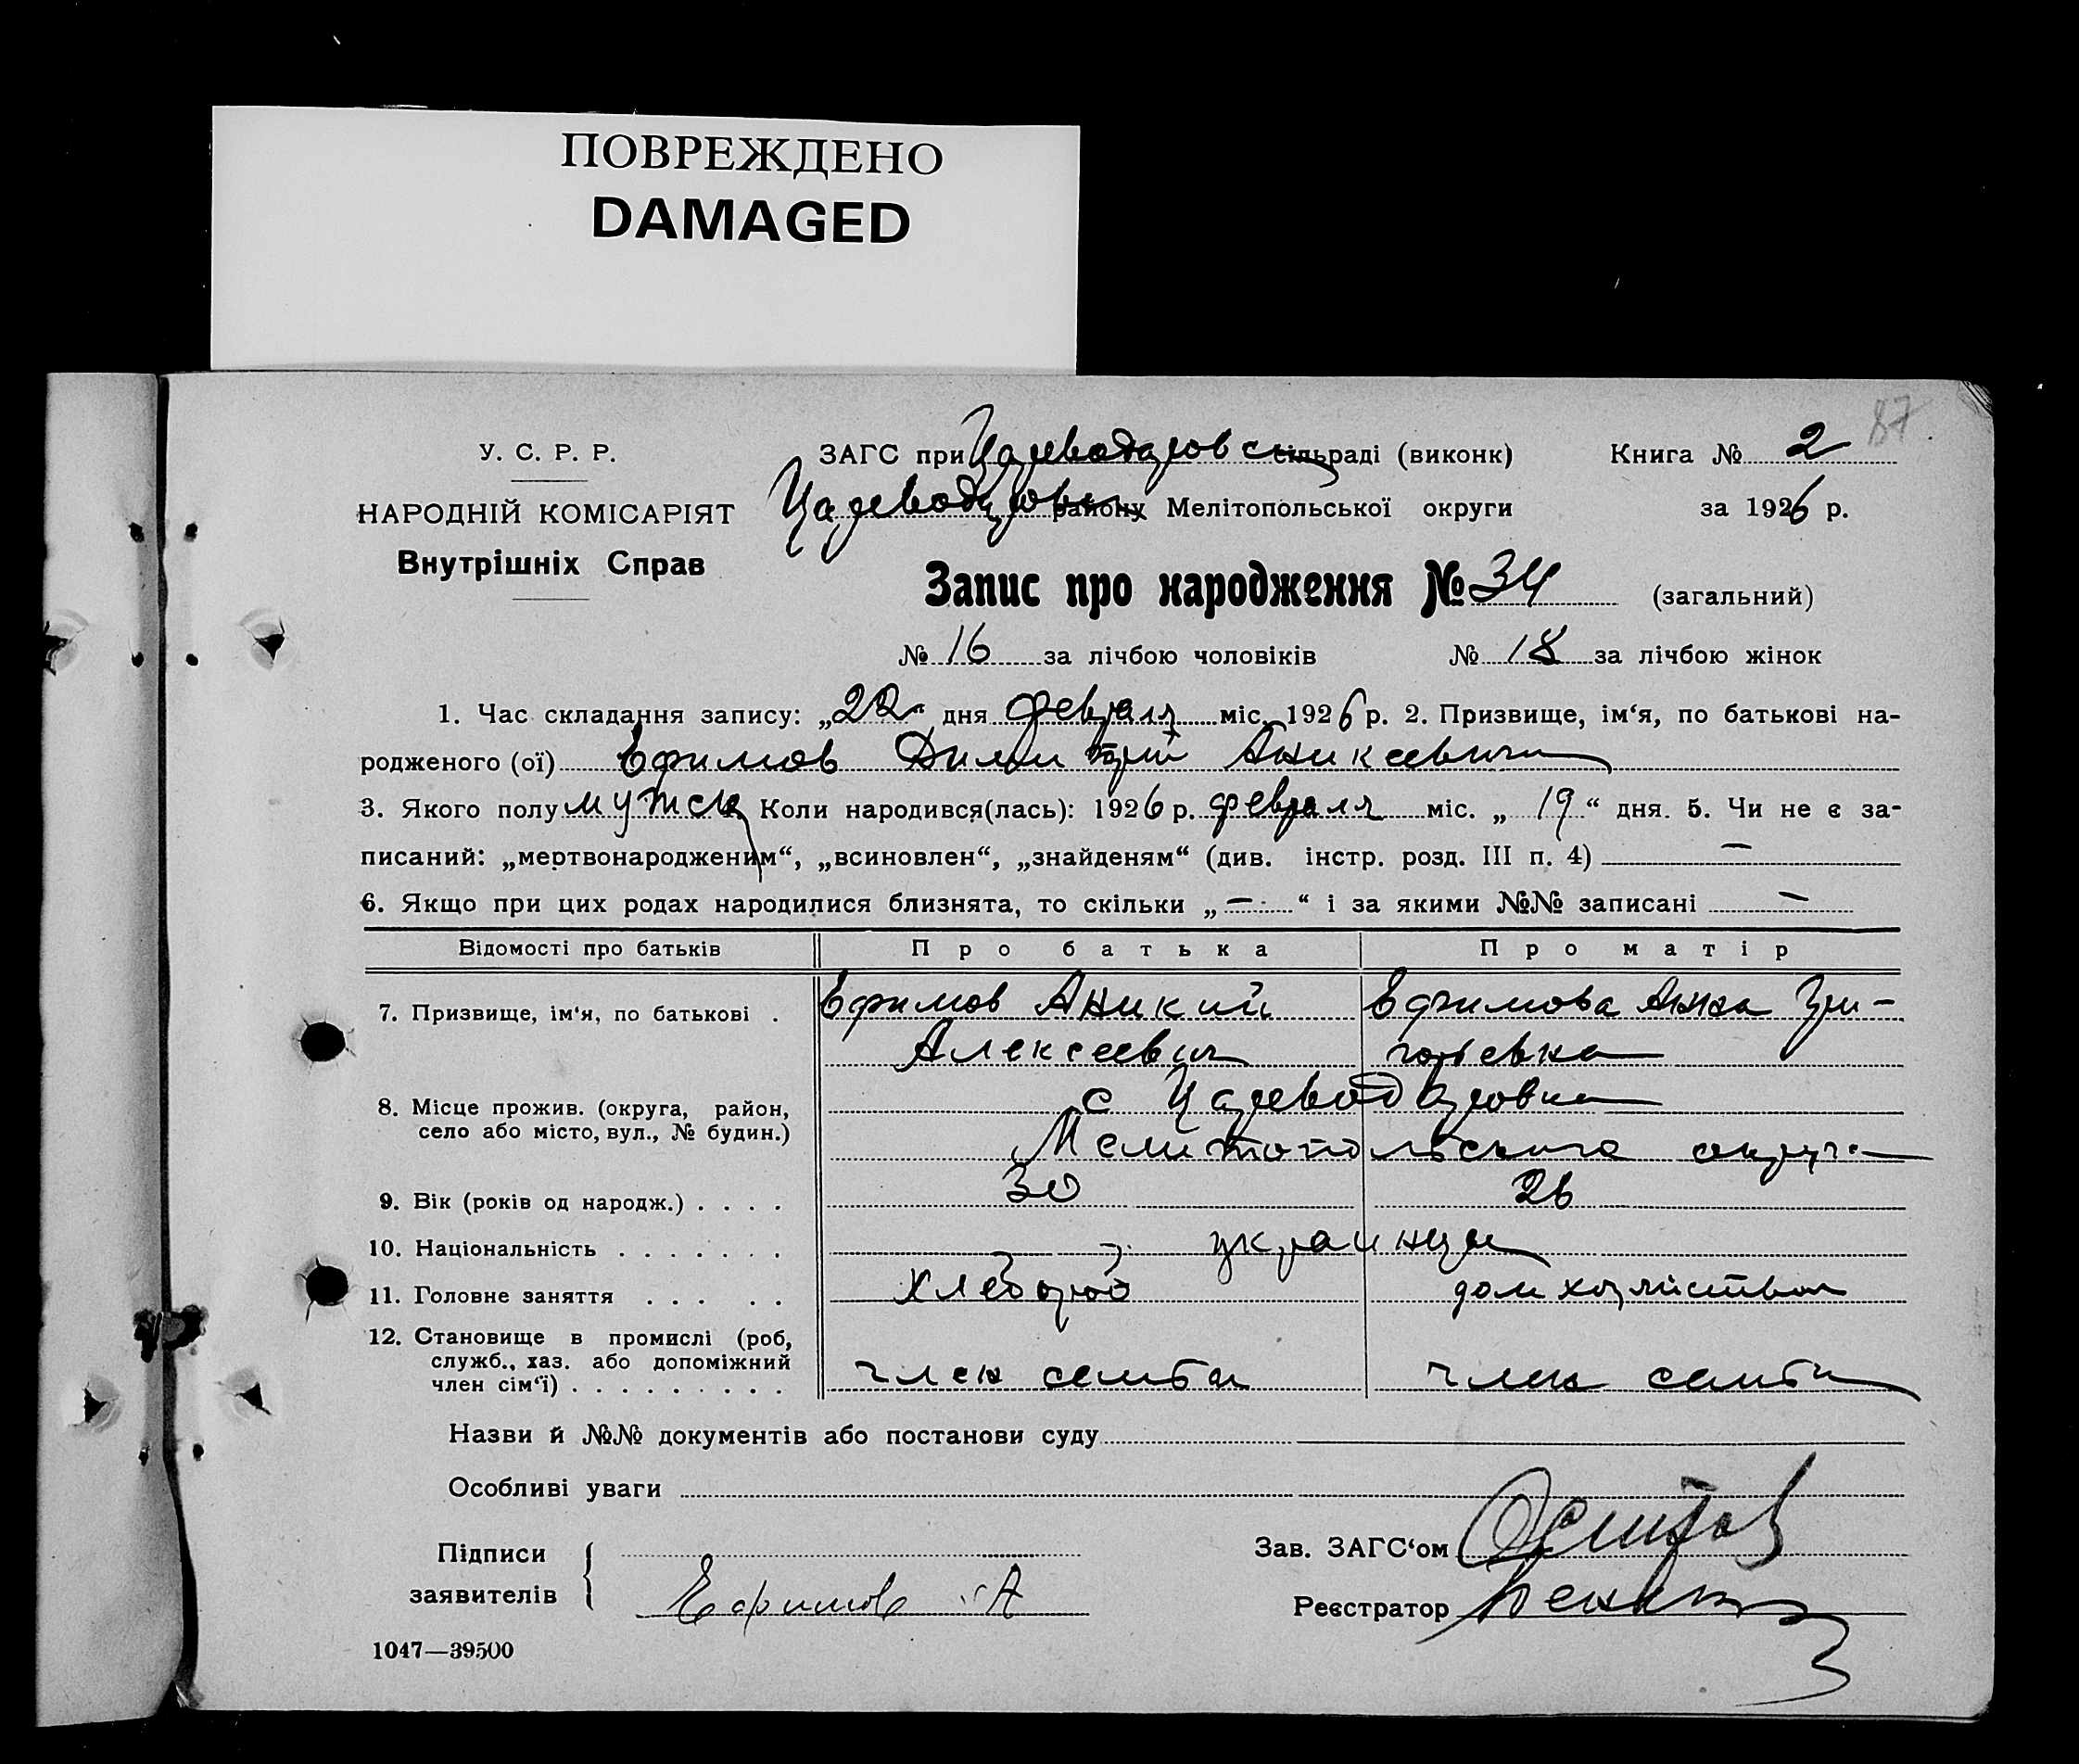 ПОВРЕЖДЕНО
DAMAGED
87
У. С. Р. Р.
НАРОДНІЙ КОМІСАРІЯТ
Внутрішніх Справ
ЗАГС при Цареводаровск сільраді (виконк)
Цареводаровск району Мелітопольської округи
Книга № 2
за 1926 р.
Запис про народження № 34 (загальний)
№ 16 за лічбою чоловіків № 18 за лічбою жінок
1. Час складання запису: „22“ дня февраля міс. 1926 р. 2. Призвище, ім‘я, по батькові на-
родженого (ої) Ефимов Димитрий Аникеевич
3. Якого полу мужск Коли народився(лась): 1926 р. февраля міс. „19“ дня. 5. Чи не є за-
писаний: „мертвонародженим“, „всиновлен“, „знайденям“ (див. інстр. розд. III п. 4) —
6. Якщо при цих родах народилися близнята, то скільки „—“ і за якими №№ записані —
Відомості про батьків Про батька Про матір
7. Призвище, ім‘я, по батькові . Ефимов Аникий Ефимова Анна Гри-
Алексеевич горьевна
8. Місце прожив. (округа, район, село або місто, вул., № будин.) с Цареводаровка
Мелитопольского округа
9. Вік (років од народж.) . . . . 30 26
10. Національність . . . . . . . украинцы
11. Головне заняття . . . . . хлебороб дом хозяйством
12. Становище в промислі (роб,
служб., хаз. або допоміжний
член сім‘ї) . . . . . . . . . член семьи член семьи
Назви й №№ документів або постанови суду
Особливі уваги
Підписи
заявителів Ефимов А
Зав. ЗАГС‘ом
Реєстратор
1047—39500